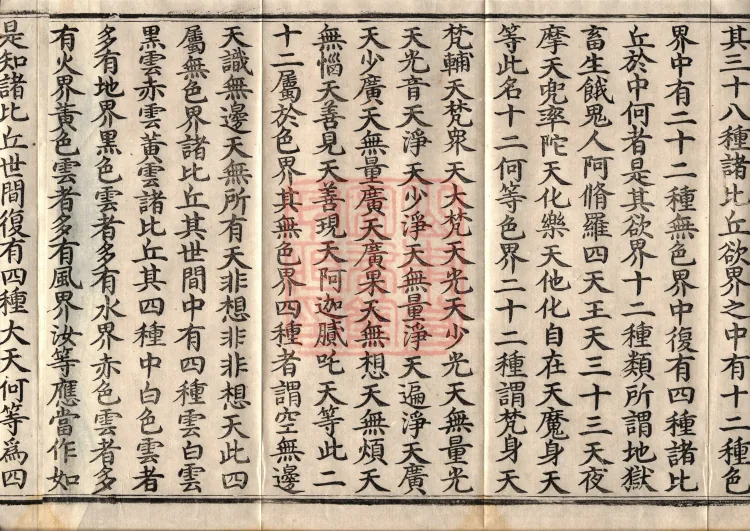 其三十八種諸比丘欲界之中有十二種色
界中有二十二種無色界中復有四種諸比
丘於中何者是其欲界十二種類所謂地獄
畜生餓鬼人阿脩羅四天王天三十三天夜
摩天兜率陀天化樂天他化自在天魔身天
等此名十二何等色界二十二種謂梵身天
梵輔天梵衆天大梵天光天少光天無量光
天光音天淨天少淨天無量淨天遍淨天廣
天少廣天無量廣天廣果天無想天無煩天
無惱天善見天善現天阿迦膩吒天等此二
十二屬於色界其無色界四種者謂空無邊
天識無邊天無所有天非想非非想天此四
屬無色界諸比丘其世間中有四種雲白雲
黑雲赤雲黃雲諸比丘其四種中白色雲者
多有地界黑色雲者多有水界赤色雲者多
有火界黃色雲者多有風界汝等應當作如
是知諸比丘世間復有四種大天何等爲四